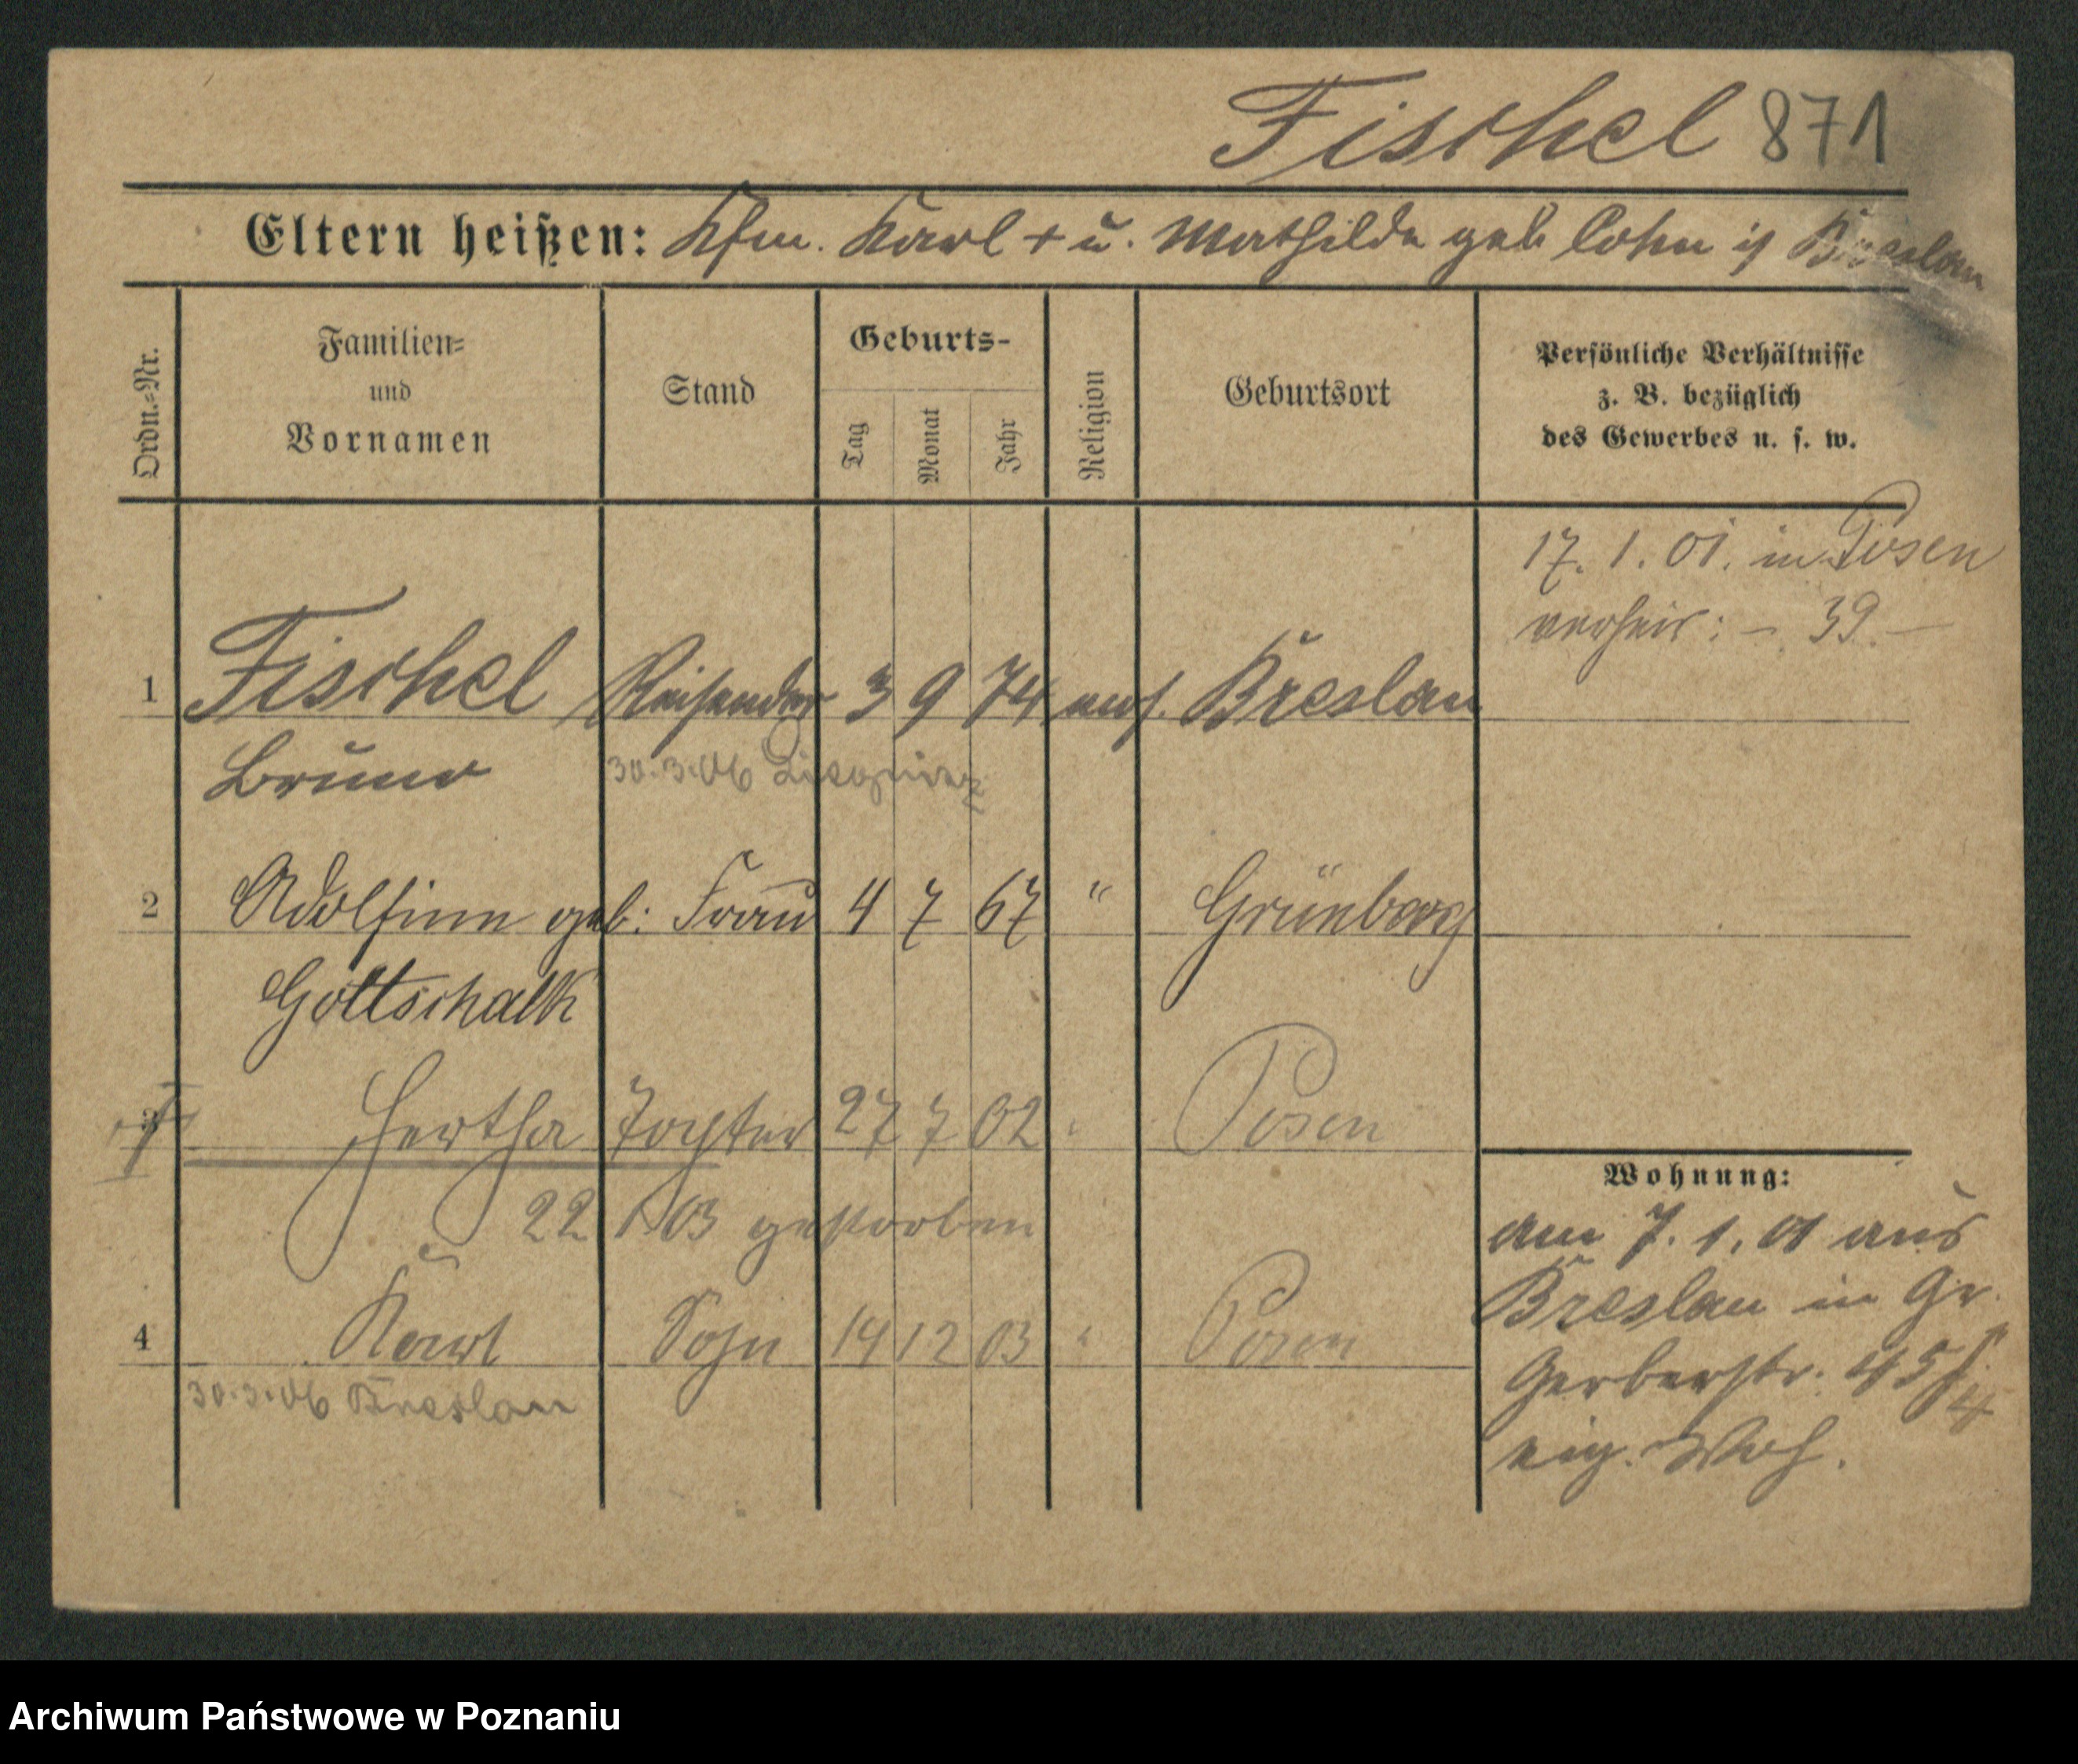 Fischel 871
Eltern heißen: Kfm. Karl + u. Mathilde geb Cohn in Breslau
Ordn.=Nr.
Familien=
und
Vornamen
Stand
Geburts-
Tag
Monat
Jahr
Religion
Geburtsort
Persönliche Verhältnisse
z. B. bezüglich
des Gewerbes u. s. w.
17. 1. 01. in Posen
verheir: – 39 –
1 Fischel Reisender 3 9 74 mos. Breslau
Bruno 30.3.06
2 Adolfine geb: Frau 4 7 67 " Grünberg
Gottschalk
3 Hertha Tochter 27 7 02 " Posen
22 1 03 gestorben
4 Karl Sohn 14 12 03 " Posen
30.3.06 Breslau
Wohnung:
am 7. 1. 01 aus
Breslau in Gr.
Gerberstr. 45
eig. Woh.
Archiwum Państwowe w Poznaniu